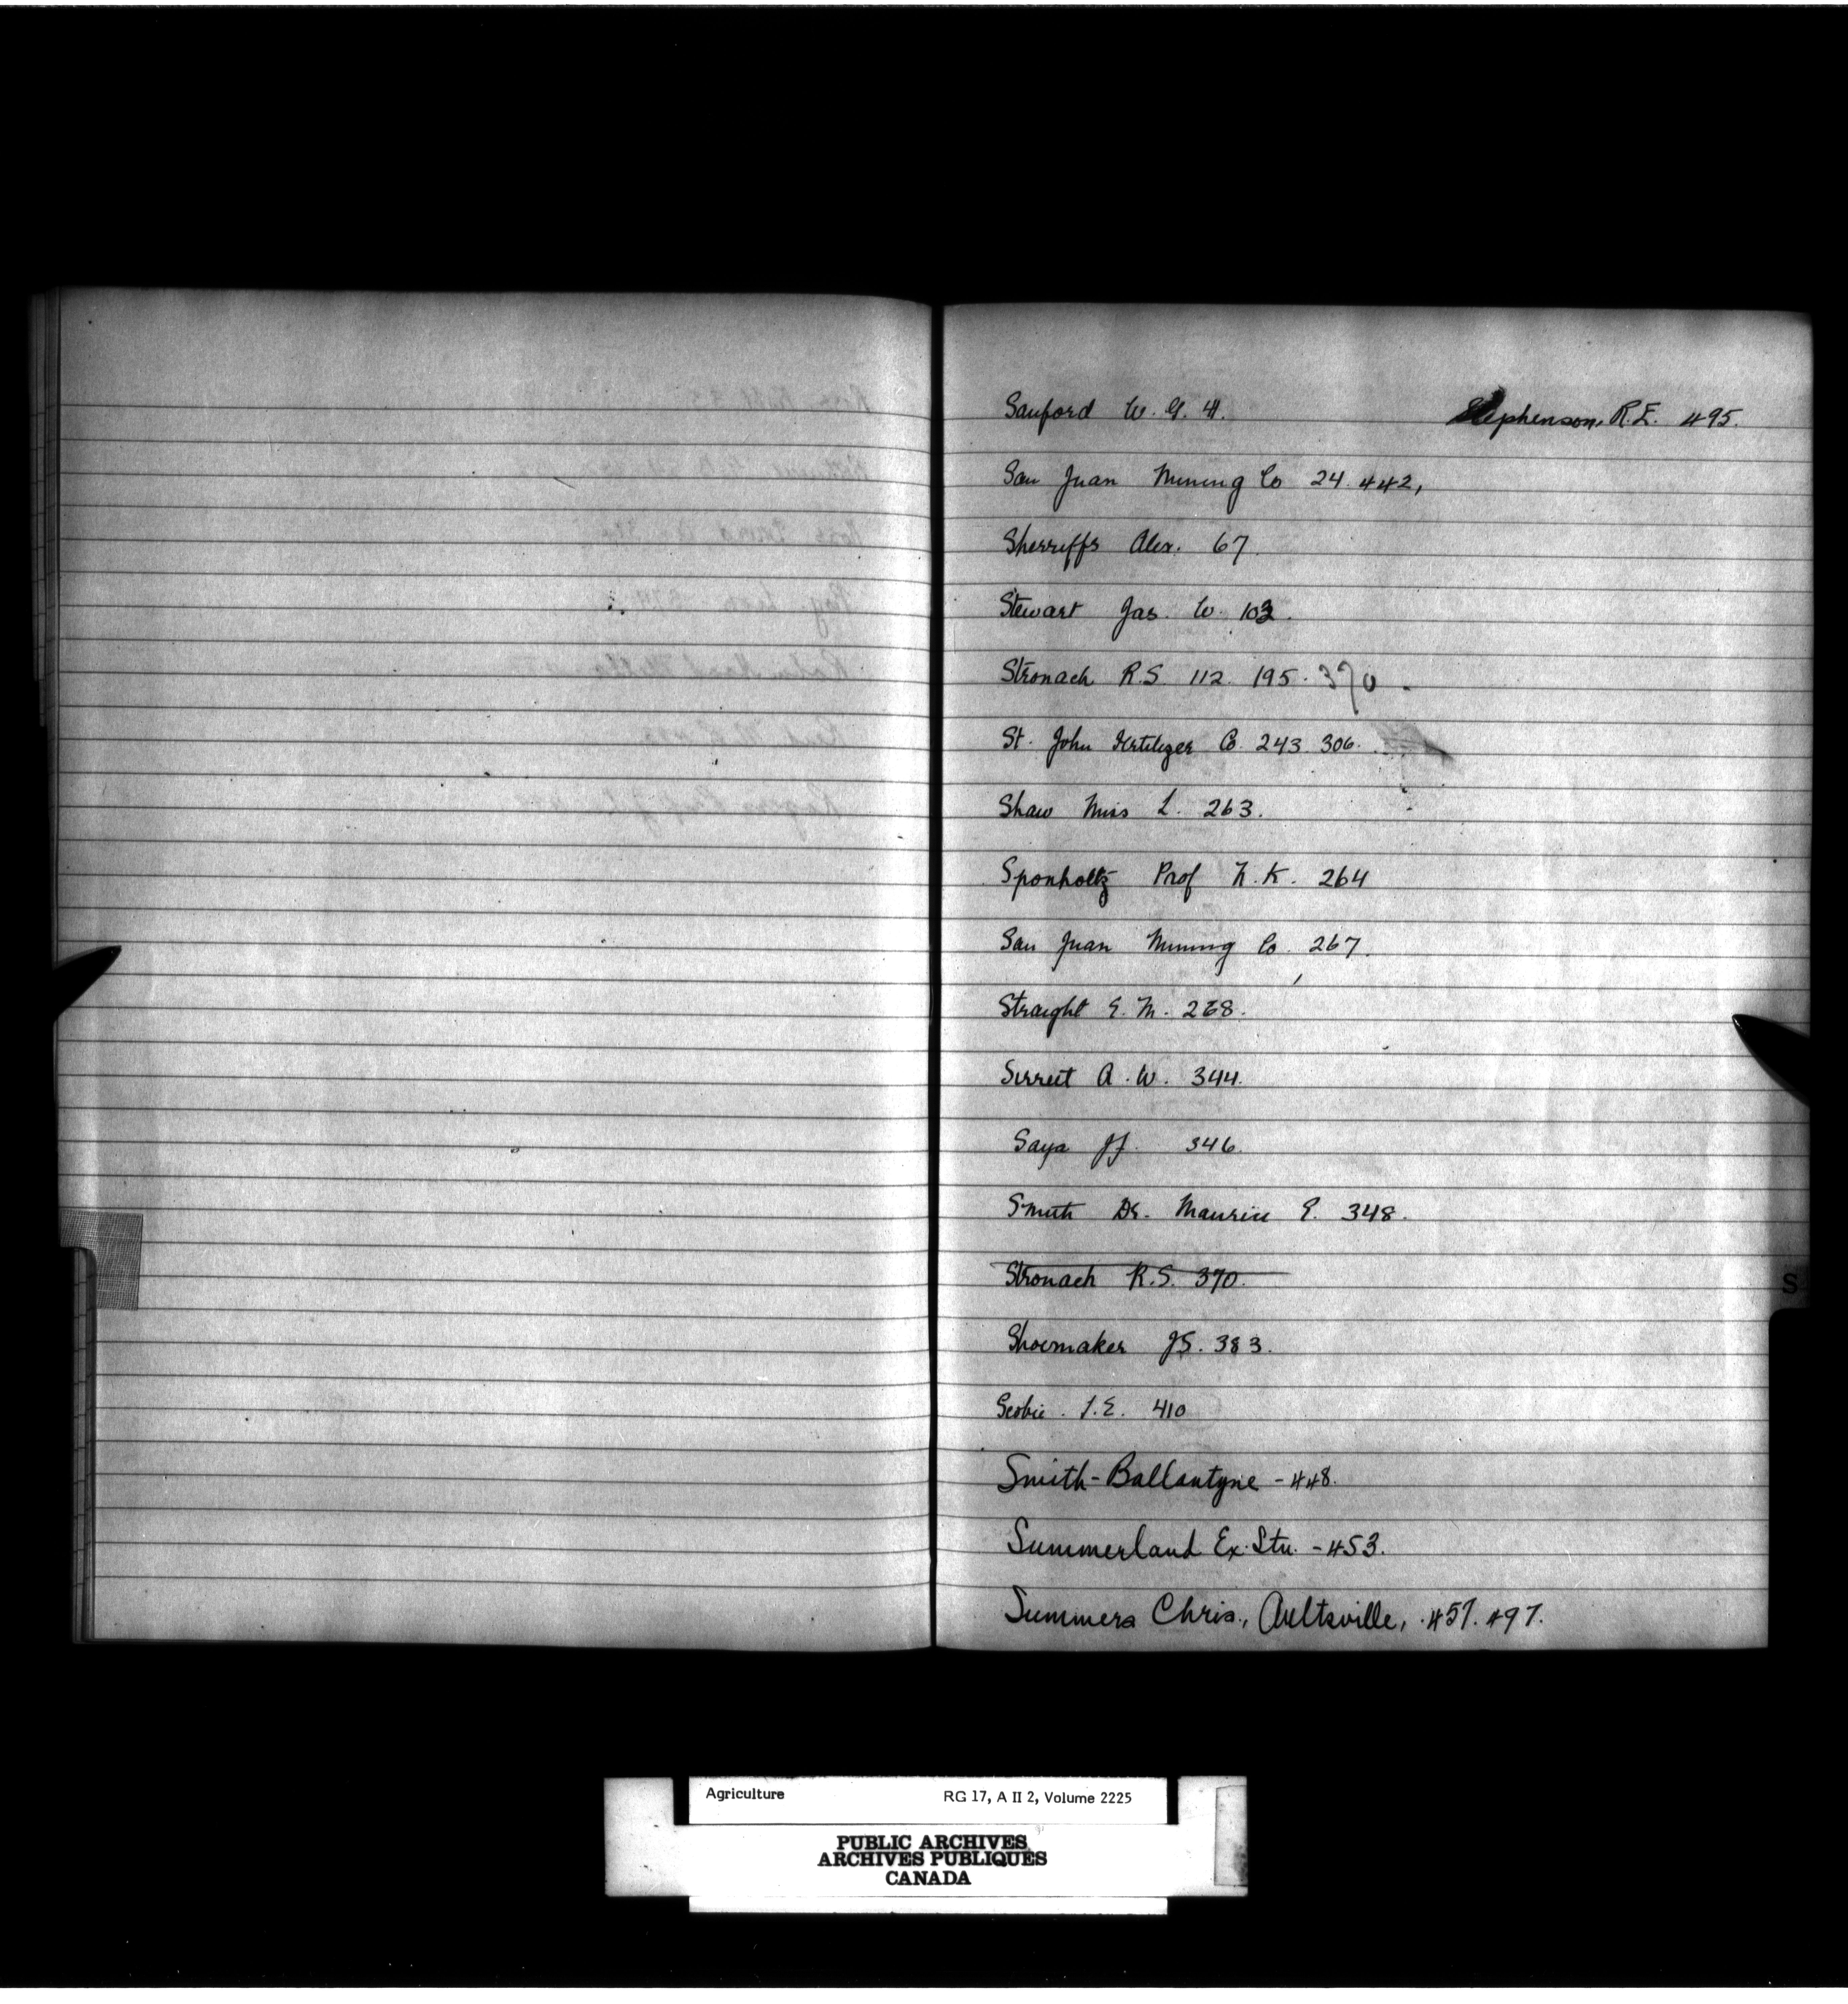 Sanford W. G. 4. Stephenson, R.E. 495.
San Juan Mining Co 24. 442,
Sherriffs Alex. 67.
Stewart Jas. W. 103.
Stronach R.S. 112. 195. 370.
St. John Fertilizer Co. 243 306.
Shaw Miss L. 263.
Sponholtz Prof K. 264
San Juan Mining Co. 267.
Straight E. M. 268.
Sirrett A. W. 344.
Saya JJ. 346.
Smith Dr. Maurice E. 348.
Stronach R.S. 370.
Shoemaker JS. 383.
Scobie. I.E. 410
Smith-Ballantyne - 448.
Summerland Ex. Stn. - 453.
Summers Chris., Aultsville, 457. 497.
S
Agriculture RG 17, A II 2, Volume 2225
PUBLIC ARCHIVES
ARCHIVES PUBLIQUES
CANADA